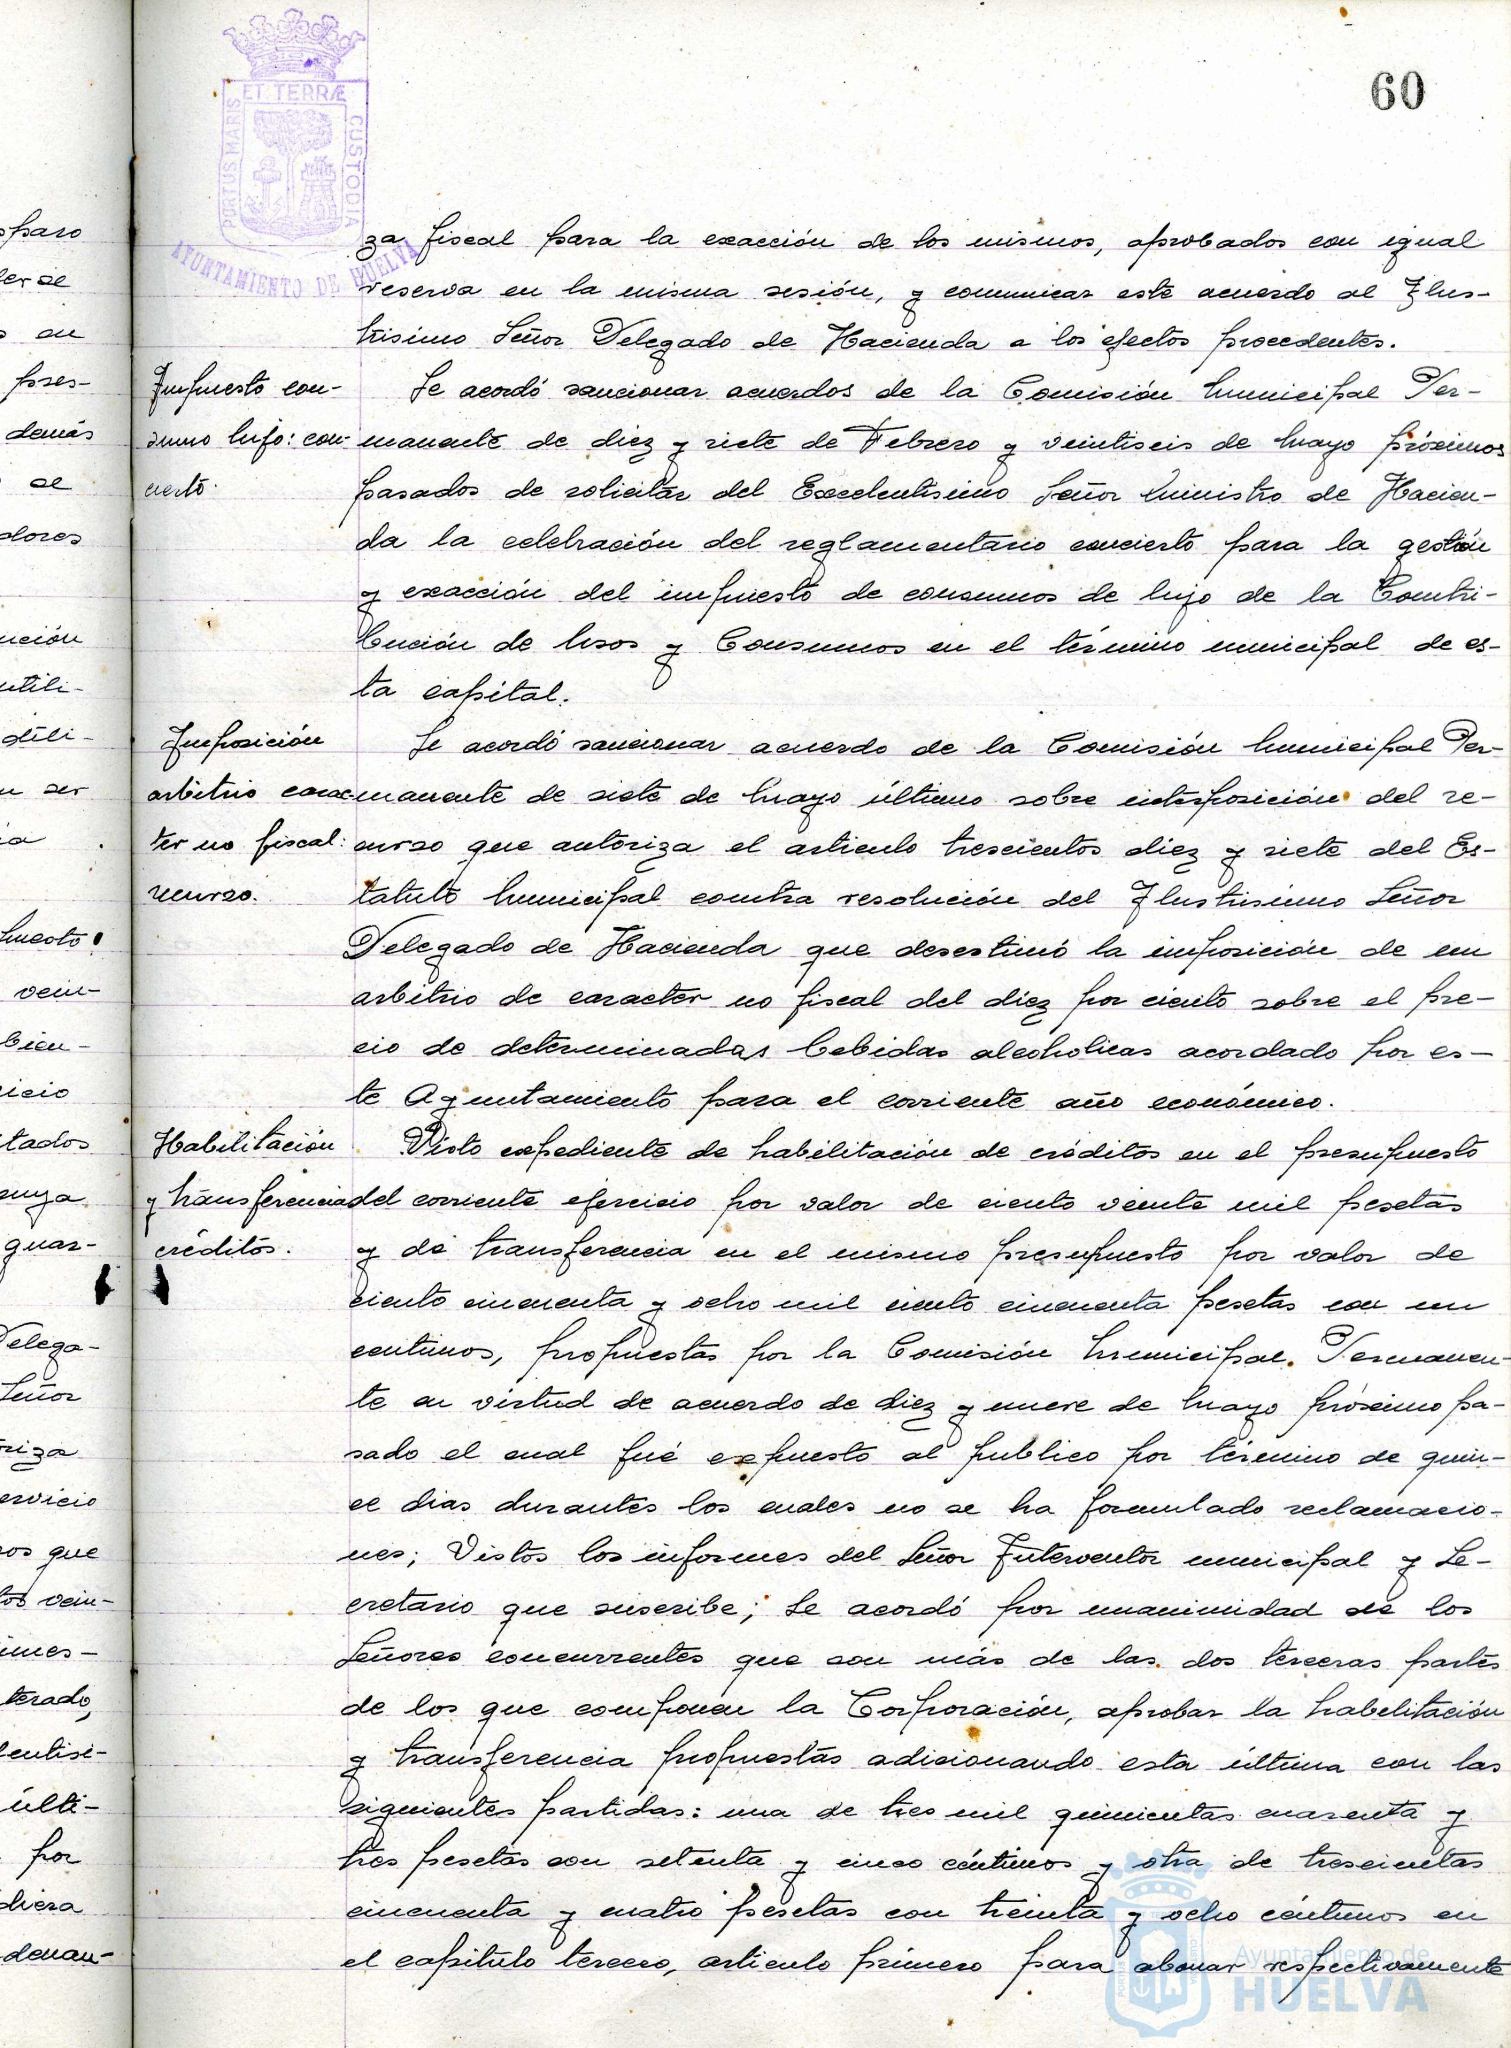 60
ET TERRÆ
PORTUS MARIS
CUSTODIA
AYUNTAMIENTO DE HUELVA
za fiscal para la exacción de los mismos, aprobados con igual
reserva en la misma sesión, y comunicar este acuerdo al Ilus-
trisimo Señor Delegado de Hacienda a los efectos procedentes.
Impuesto con-
sumo lujo: con-
cierto.
Se acordó sancionar acuerdos de la Comisión Municipal Per-
manente de diez y siete de Febrero y veintiseis de Mayo próximos
pasados de solicitar del Excelentisimo Señor Ministro de Hacien-
da la celebración del reglamentario concierto para la gestión
y exacción del impuesto de consumos de lujo de la Contri-
bución de Usos y Consumos en el término municipal de es-
ta capital.
Imposición
arbitrio carac-
ter no fiscal:
recurso.
Se acordó sancionar acuerdo de la Comisión Municipal Per-
manente de siete de Mayo último sobre interposición del re-
curso que autoriza el articulo trescientos diez y siete del Es-
tatuto Municipal contra resolución del Ilustrisimo Señor
Delegado de Hacienda que desestimó la imposición de un
arbitrio de caracter no fiscal del diez por ciento sobre el pre-
cio de determinadas bebidas alcoholicas acordado por es-
te Ayuntamiento para el corriente año económico.
Habilitación
y transferencia
créditos.
Visto expediente de habilitación de créditos en el presupuesto
del corriente ejercicio por valor de ciento veinte mil pesetas
y de transferencia en el mismo presupuesto por valor de
ciento cincuenta y ocho mil ciento cincuenta pesetas con un
centimos, propuestas por la Comisión Municipal. Permanen-
te en virtud de acuerdo de diez y nueve de Mayo próximo pa-
sado el cual fué expuesto al publico por término de quin-
ce dias durantes los cuales no se ha formulado reclamacio-
nes; Vistos los informes del Señor Interventor municipal y Se-
cretario que suscribe; Se acordó por unanimidad de los
Señores concurrentes que son más de las dos terceras partes
de los que componen la Corporación, aprobar la habilitación
y transferencia propuestas adicionando esta última con las
siguientes partidas: una de tres mil quinientas cuarenta y
tres pesetas con setenta y cinco céntimos y otra de trescientas
cincuenta y cuatro pesetas con treinta y ocho céntimos en
el capitulo tercero, articulo primero para abonar respectivamente
Ayuntamiento de
HUELVA